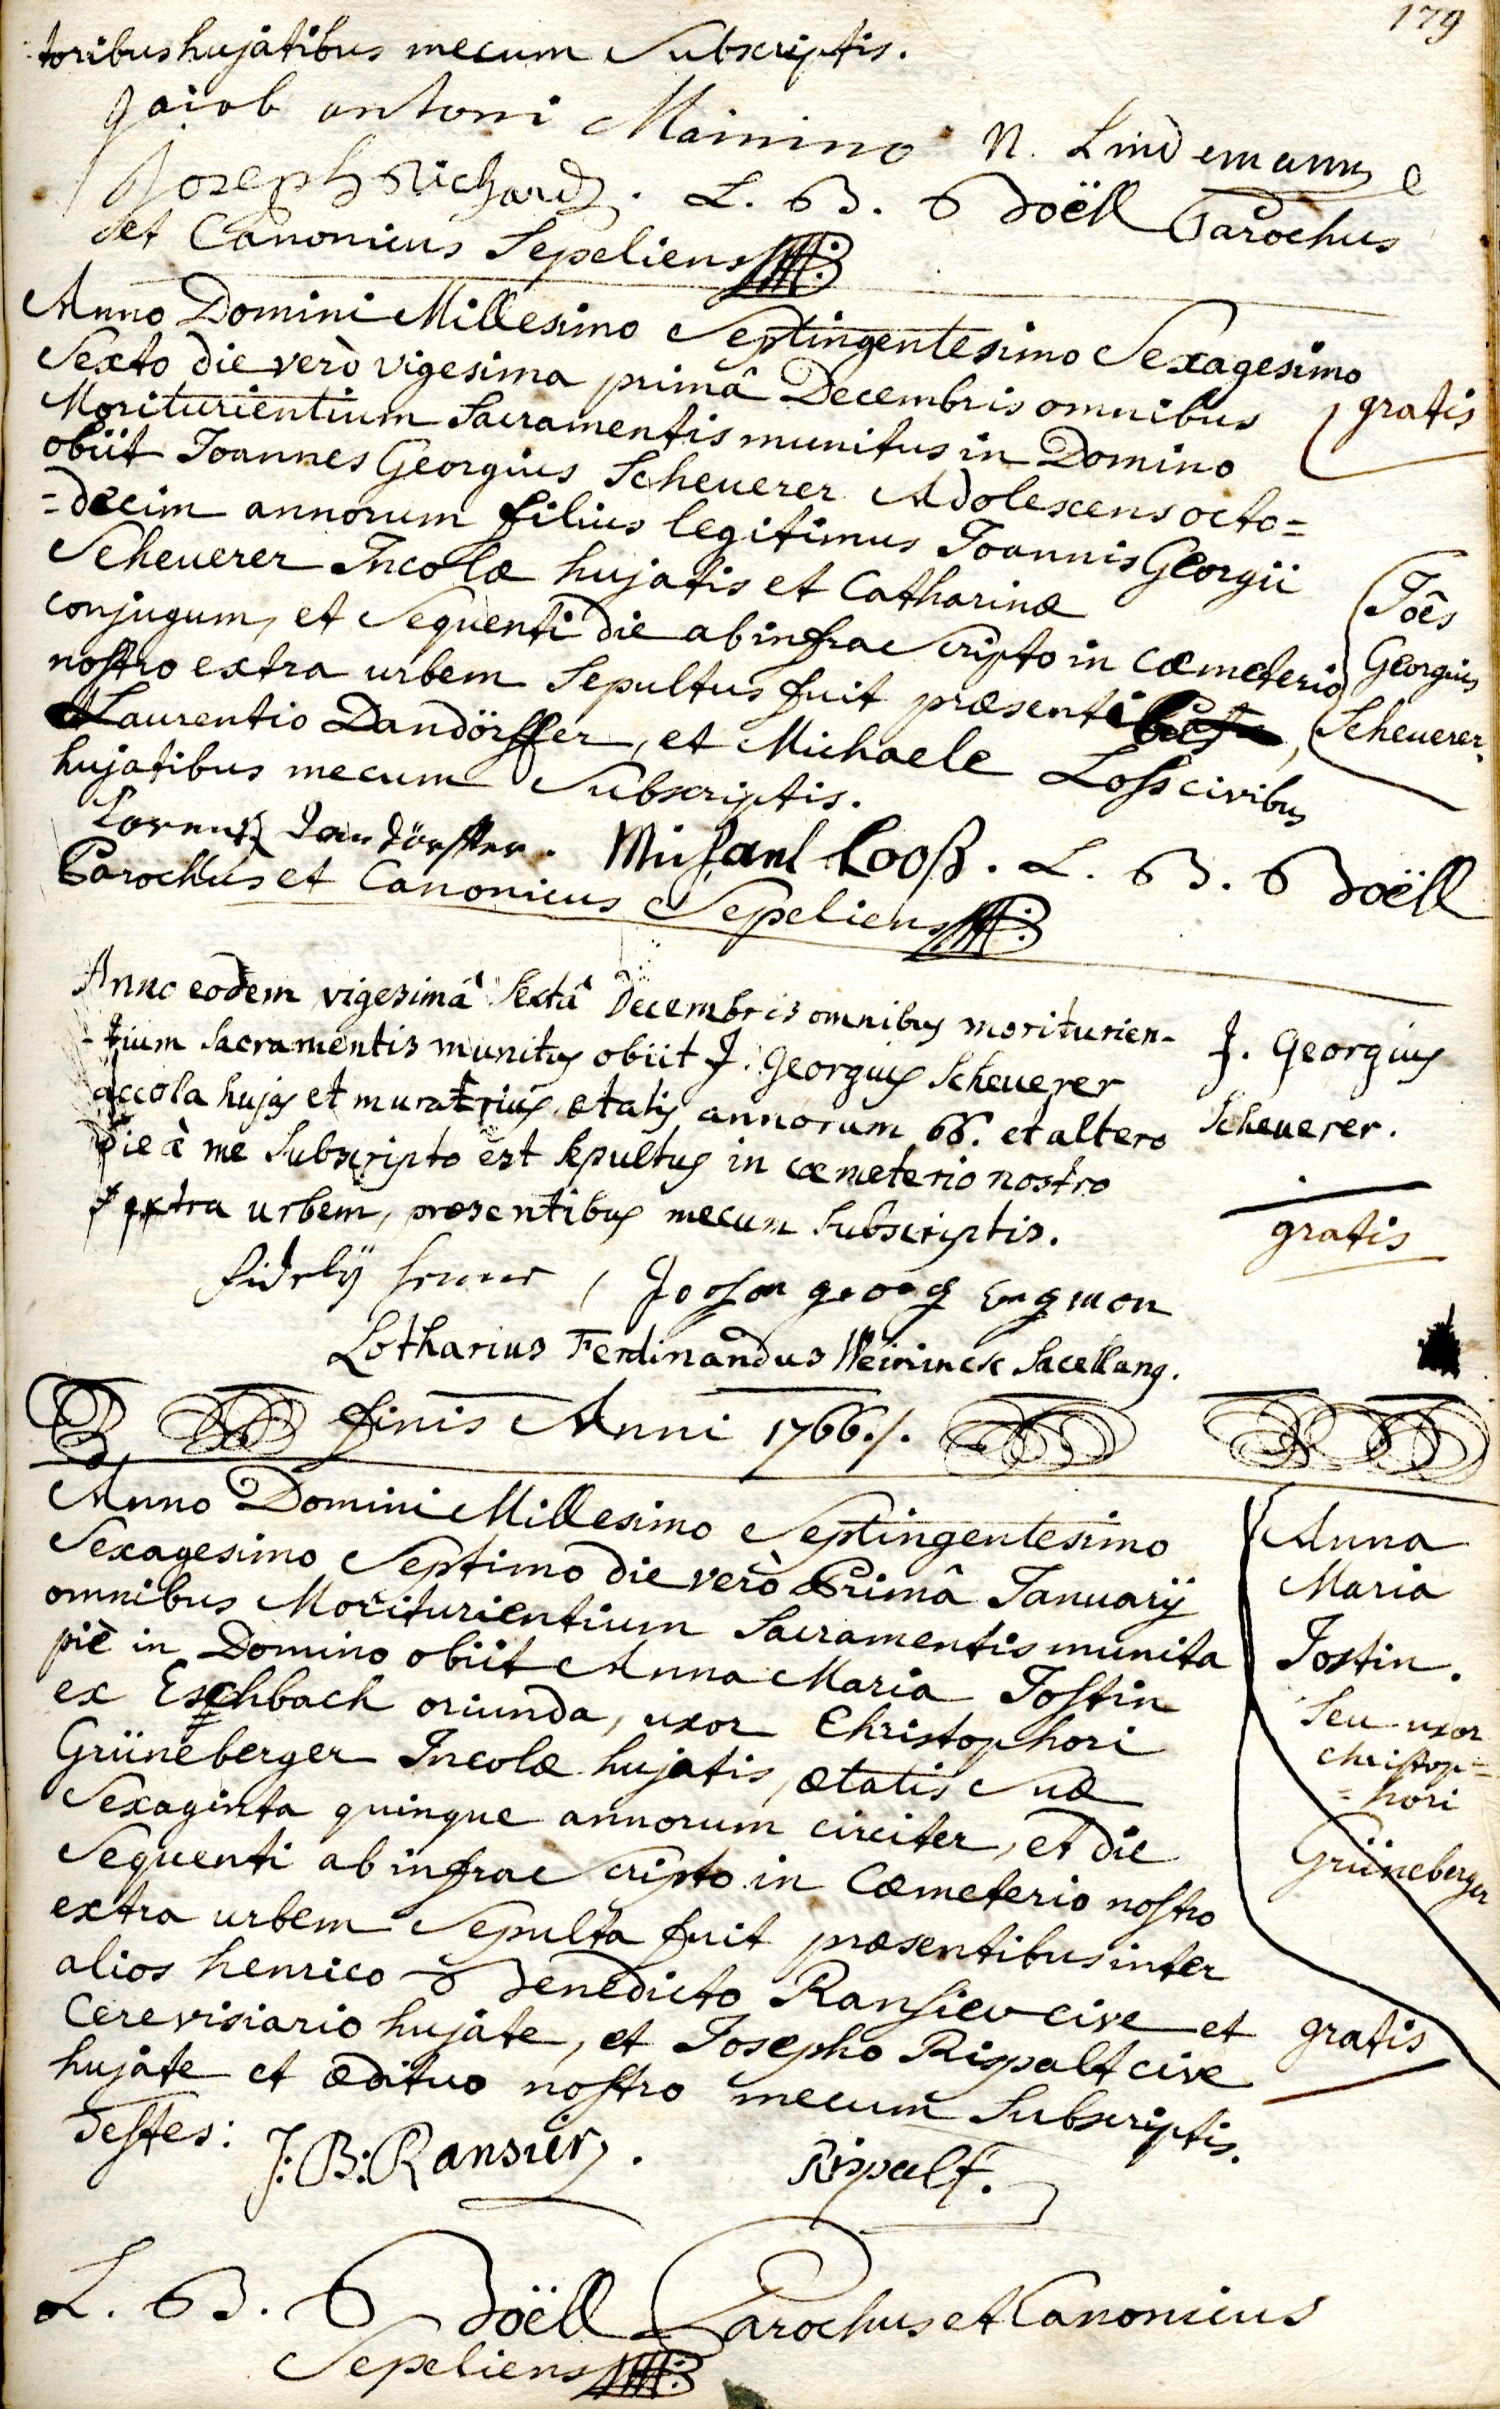 179
toribus hujatibus mecum Subscriptis.
Jacob antoni Mainino N. Lindemann
Joseph Richard. L. B. Doëll Parochus
et Canonicus Sepeliens
Anno Domini Millesimo Septingentesimo Sexagesimo
Sexto die verò vigesima primâ Decembris omnibus
gratis
Moriturientium Sacramentis munitus in Domino
obiit Joannes Georgius Scheuerer Adolescens octo=
=decim annorum filius legitimus Joannis Georgii
Scheuerer Incolæ hujatis et Catharinæ
Joês
Georgius
Scheuerer.
conjugum, et Sequenti die ab infrascripto in cæmeterio
nostro extra urbem Sepultus fuit præsenti
Laurentio Dandörffer, et Michaele Loss civibus
hujatibus mecum Subscriptis.
Lorentz Dandörffer. Michael Looß. L. B. Doëll
Parochus et Canonicus Sepeliens
Anno eodem vigesimâ Sextâ Decembris omnibus moriturien-
-tium Sacramentis munitus obiit J. Georgius Scheuerer
accola hujas et muratrius, ætatis annorum 66. et altero
die à me Subscripto est Sepultus in cæmeterio nostro
extra urbem, præsentibus mecum Subscriptis.
J. Georgius
Scheuerer.
gratis
fidely
georg
Lotharius Ferdinandus Weirinck Sacellanus.
finis Anni 1766./.
Anno Domini Millesimo Septingentesimo
Sexagesimo Septimo die verò Primâ Januarÿ
omnibus Moriturientium Sacramentis munita
piè in Domino obiit Anna Maria Jostin
ex Eschbach oriunda, uxor Christophori
Grüneberger Incolæ hujatis, ætatis Suæ
Sexaginta quinque annorum circiter, et die
Sequenti ab infrascripto in Cæmeterio nostro
extra urbem Sepulta fuit præsentibus inter
alios henrico Benedicto Ransieu cive et
Cerevisiario hujate, et Josepho Rispalt cive
hujate et ædituo nostro mecum Subscriptis.
Anna
Maria
Jostin.
Seu uxor
christop=
=hori
Grüneberger
gratis
Testes: J: B: Ransier. Rispalt.
L. B. Doëll Parochus et Canonicus
Sepeliens